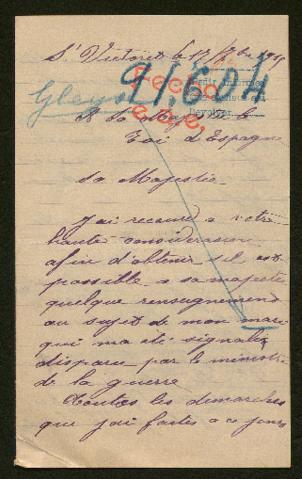 St Victoret le 17/7bre 1915
91,604
Gleyo
A Sa Majesté le
Roi d'Espagne
Sa Majestée
J'ai recours a votre
haute consideration
afin d'obtenir s'il est
possible a sa majestée
quelque renseignement
au sujet de mon mari
qui ma été signalez
disparu par le ministre
de la guerre
Toutes les demarches
que jai faites a ce jours